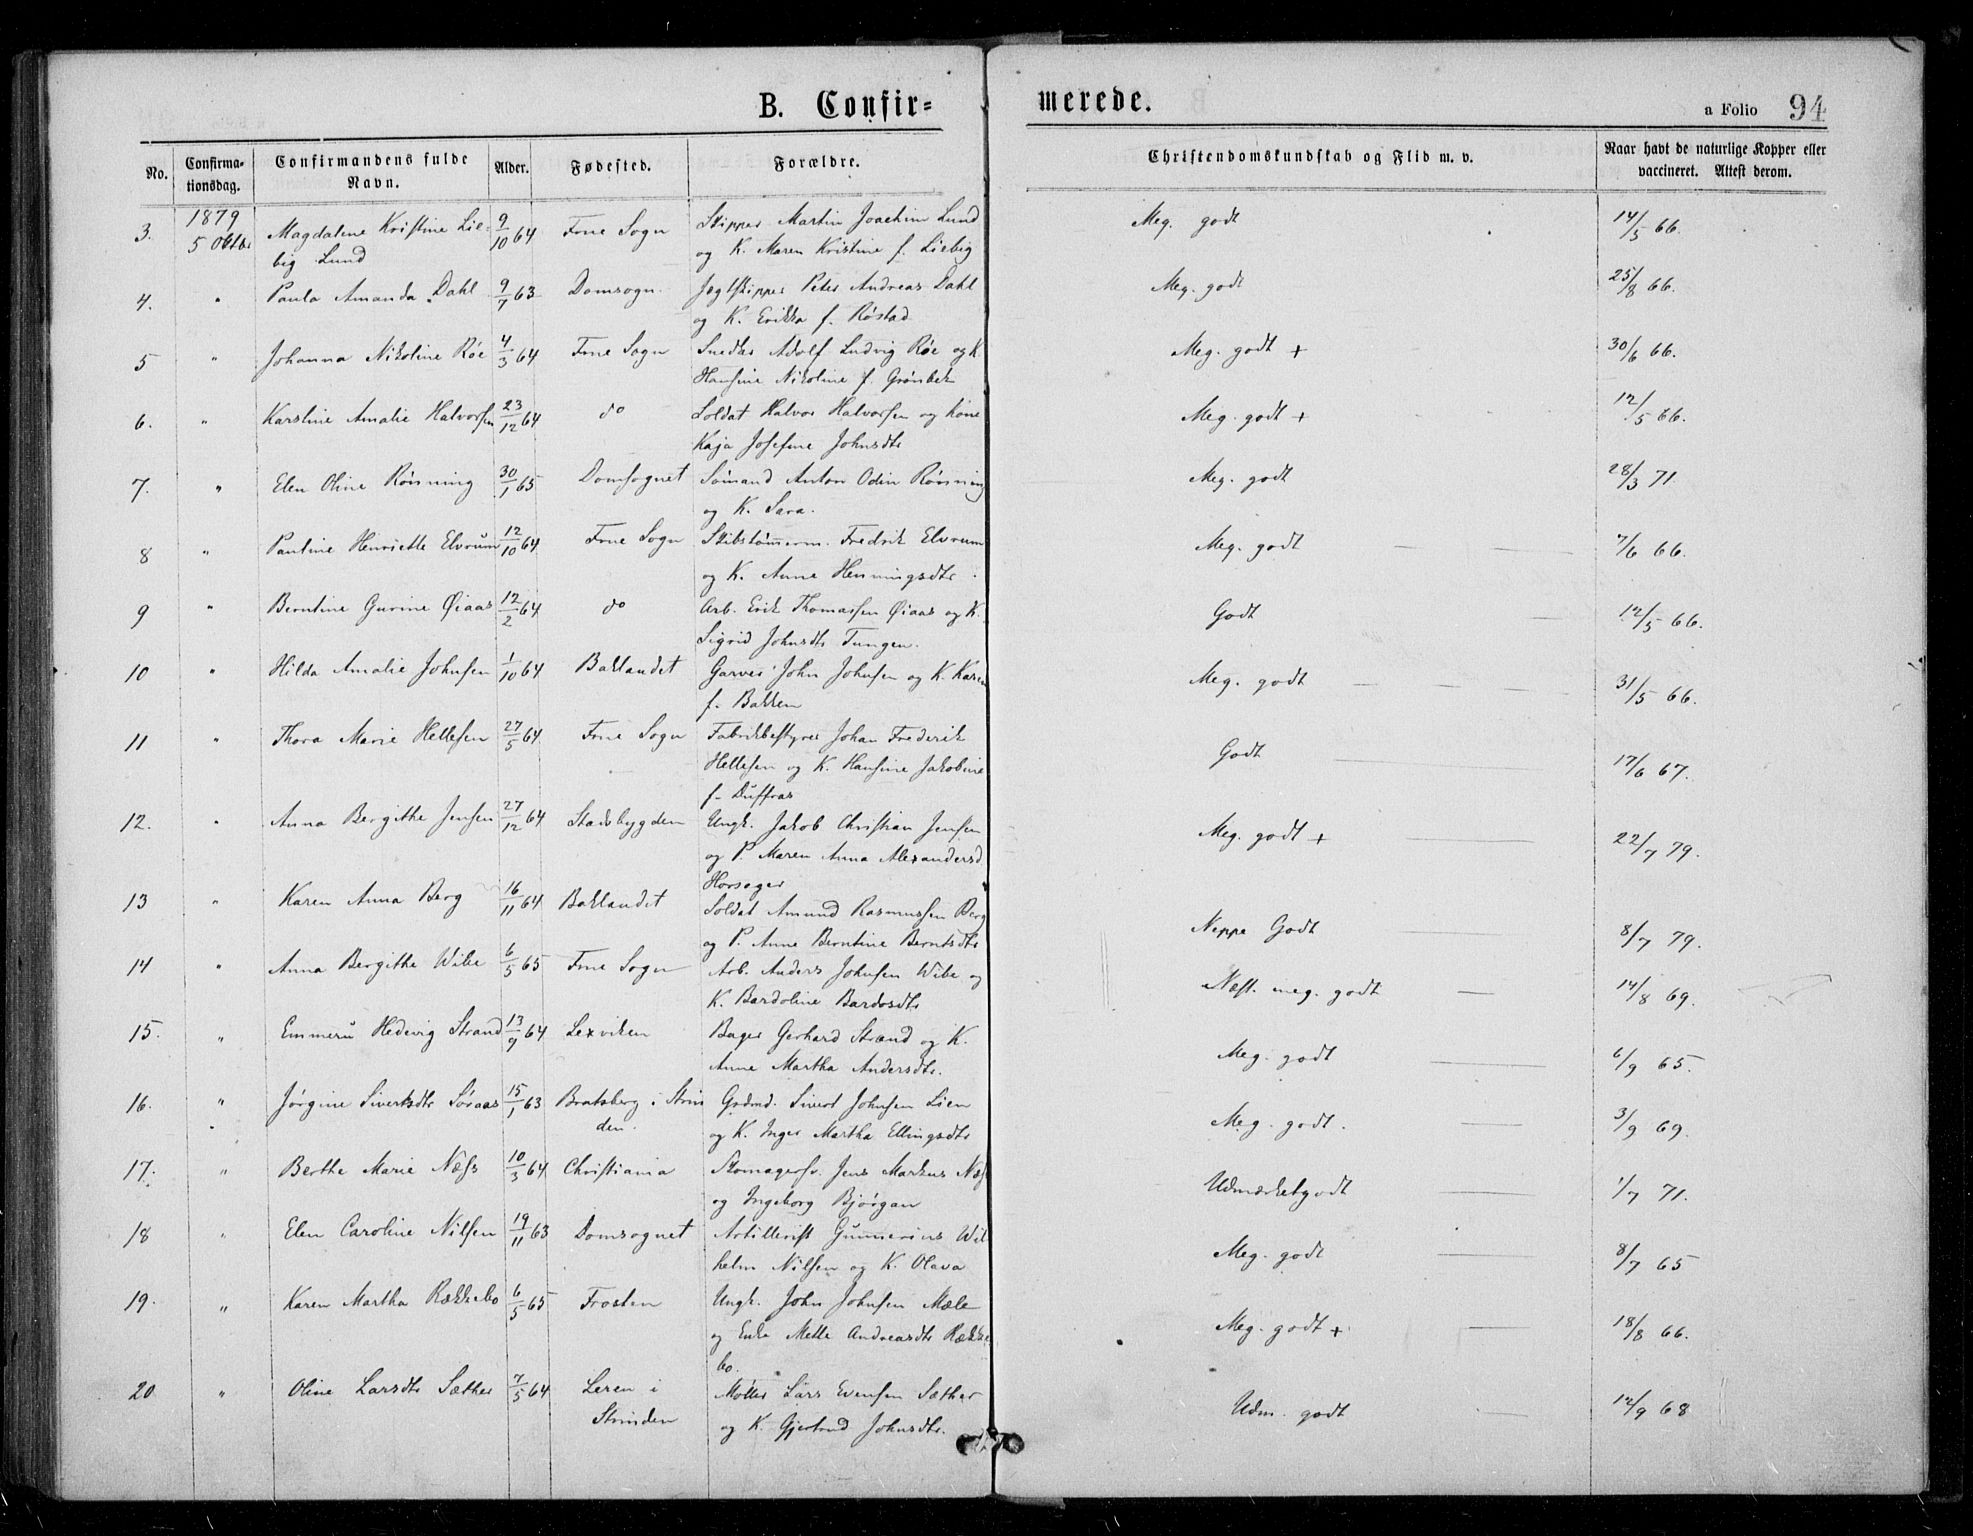 B. Confir=
merede.
a Folio 94
No.
Confirma-
tionsdag.
Confirmandens fulde
Navn.
Alder.
Fødested.
Forældre.
Christendomskundskab og Flid m. v.
Naar havt de naturlige Kopper eller
vaccineret. Attest derom.
3. 1879 Magdalene Kristine Lie- 9/10 64 Frue Sogn Skipper Martin Joachim Lund Meg. godt 14/5 66.
5 Oktbr big Lund og K. Maren Kristine f. Liebig
4. " Paula Amanda Dahl 9/7 63 Domsogn. Jagtskipper Peter Andreas Dahl Meg. godt 25/8 66.
og K. Erikka f. Røstad
5 " Johanna Nikoline Røe 4/3 64 Frue Sogn Snedker Adolf Ludvig Røe og K. Meg. godt + 30/6 66.
Hansine Nikoline f. Grønbek
6. " Karoline Amalie Halvorsen 23/12 64 do Soldat Halvor Halvorsen og Kone Meg. godt + 12/5 66.
Kaja Josefine Johnsdtr
7. " Elen Oline Rønning 30/1 65 Domsognet Sømand Anton Odin Rønning Meg. godt 28/3 71.
og K. Sara.
8 " Pauline Henriette Elvrum 12/10 64 Frue Sogn Skibstømerm. Fredrik Elvrum Meg. godt 7/6 66.
og K. Anne Henningsdtr.
9 " Berntine Gurine Øiaas 12/2 64 do Arb. Erik Thomassen Øiaas og K. Godt 12/5 66.
Sigrid Johnsdtr Tungen.
10 " Hilda Amalie Johnsen 1/10 64 Baklandet Garver John Johnsen og K. Karen Meg. godt 31/5 66.
f. Bakken
11 " Thora Marie Hellesen 27/5 64 Frue Sogn Fabrikbestyrer Johan Frederik Godt 17/6 67.
Hellesen og K. Hansine Jakobine
f. Duffras
12. " Anna Bergithe Jensen 27/12 64 Stadsbygden Ungk. Jakob Christian Jensen Meg. godt + 22/7 79.
og P. Maren Anna Alexandersd.
Horsager
13 " Karen Anna Berg 16/11 64 Baklandet Soldat Amund Rasmussen Berg Neppe Godt 8/7 79.
og P. Anne Berntine Berntsdtr
14 " Anna Bergithe Wibe 6/5 65 Frue Sogn Arb. Anders Johnsen Wibe og Næst. meg. godt 14/8 69.
K. Bardoline Bardosdtr
15. " Hedevig Strand 13/9 64 Lexviken Bager Gerhard Strand og K. Meg. godt 6/9 65.
Anne Martha Andersdtr.
16. " Jørgine Sivertsdtr Søraas 15/1 63 Bratsberg i Strin Grdmd. Sivert Johnsen Lien Meg. godt. 3/9 69.
den. og K. Inger Martha Ellingsdtr
17. " Berthe Marie Næss 10/3 64 Christiania Skomagersv. Jens Markus Næss Udmærketgodt 1/7 71.
og Ingeborg Bjørgan
18 " Elen Caroline Nilsen 19/11 63 Domsognet Artillerist Gunnerius Wil Meg. godt 8/7 65
helm Nilsen og K. Olava
19. " Karen Martha Rækkebo 6/5 65 Frosten Ungk. John Johnsen Mæle Meg. godt + 18/8 66.
og Enke Mette Andreasdtr Række
bo.
20 " Oline Larsdtr Sæther 7/5 64 Leren i Møller Lars Evensen Sæther Udm. godt 12/9 68
Strinden og K. Gjertrud Johnsdtr.